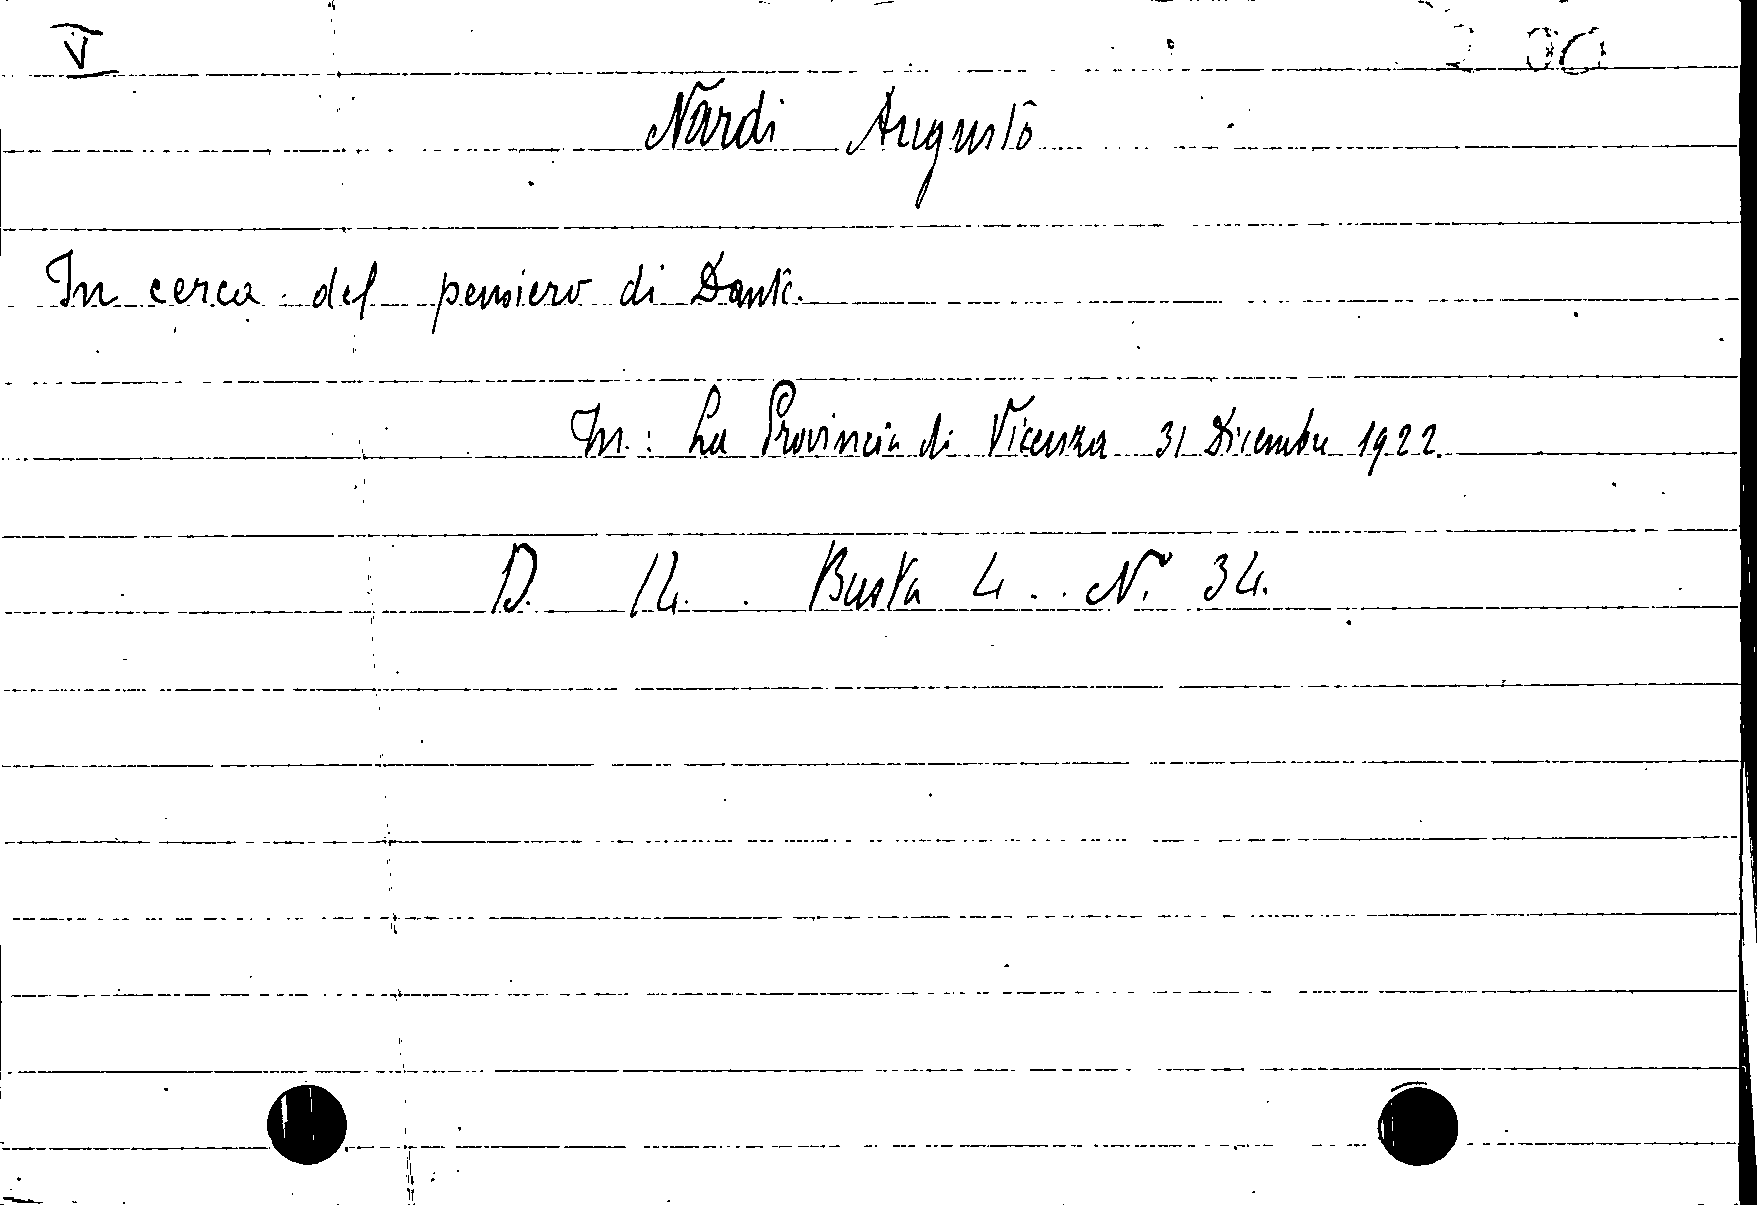 V
Nardi Augusto
In cerca del pensiero di Dante.
In: La Provincia di Vicenza 31 Dicembre 1922.
D. 14. Busta 4. N. 34.